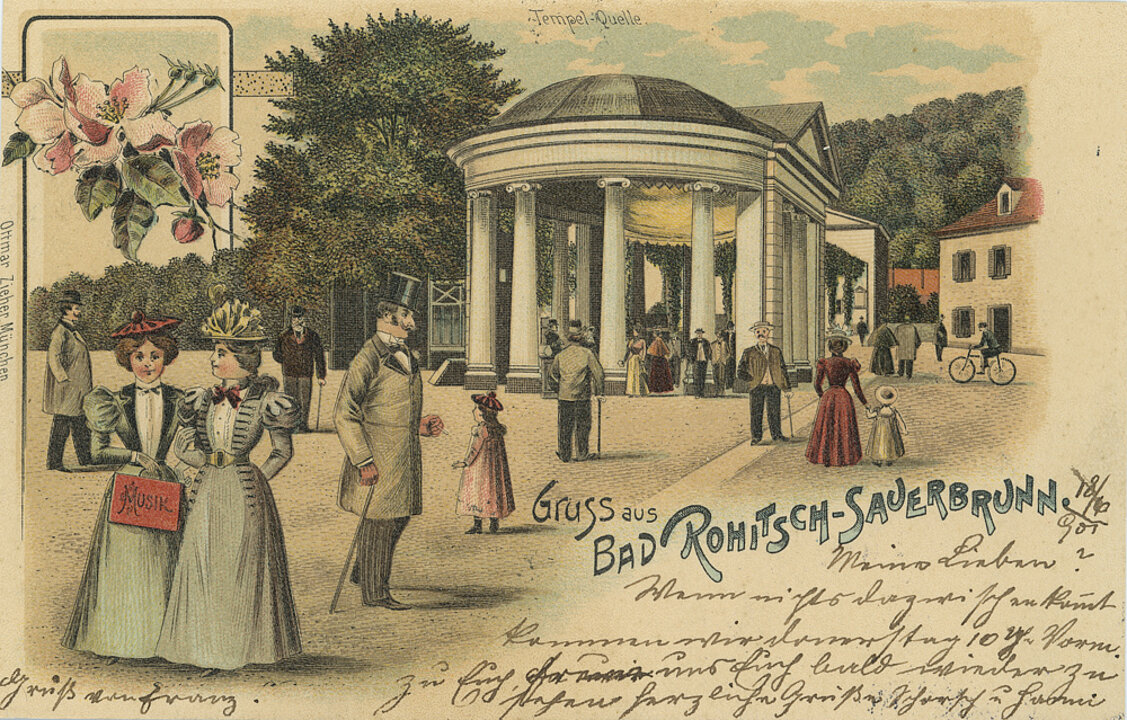 Tempel-Quelle.
Ottmar Zieher, München
MUSIK.
Gruss aus
BAD ROHITSCH-SAUERBRUNN.
18/6
Meine Lieben
Wenn nichts dazwischen kommt
kommen wir donnerstag 10 Vorm.
zu Euch uns Euch bald wieder zu
sehen herzliche Grüße Schorsch u
Gruß von Franz.